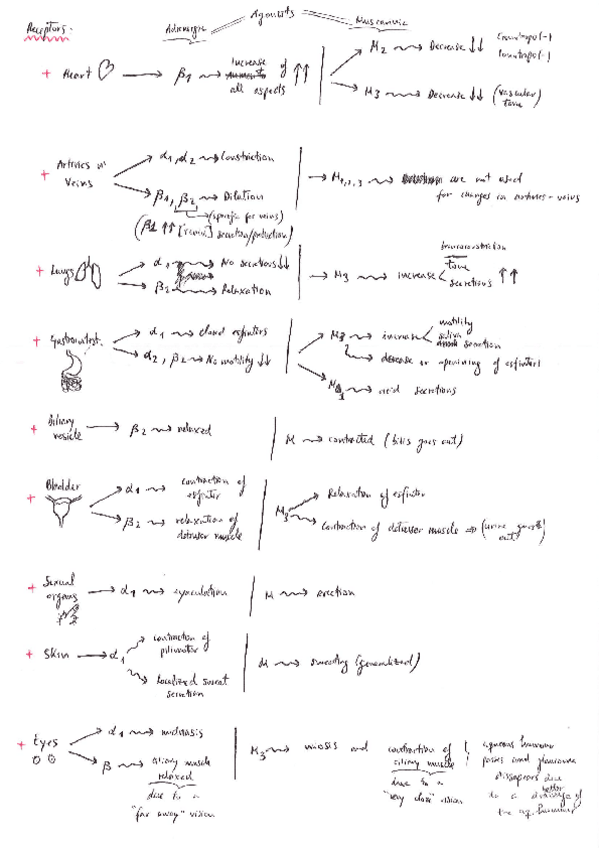 Receptors:
Agonists
Adrenergic
Muscarinic
+ Heart → β1 ⇝ Increase of ↑↑
all aspects
M2 ⇝ Decrease ↓↓
M3 ⇝ Decrease ↓↓ (vascular)
tone
+ Arteries n'
Veins
α1, α2 ⇝ Constriction
β1, β2 ⇝ Dilation
(specific for veins)
(β1 ↑↑ [renin] secretion/production)
M1,2,3 ⇝ are not used
for changes in arteries-veins
+ Lungs
α1 ⇝ No secretions ↓↓
β2 ⇝ Relaxation
M3 ⇝ increase
bronchoconstriction
tone
secretions ↑↑
+ Gastrointest.
α1 ⇝ closed esfinters
α2, β2 ⇝ No motility ↓↓
M3 ⇝ increase
motility
saliva
secretion
decrease or openining of esfinters
M1 ⇝ acid secretions
+ Biliary
vesicle
β2 ⇝ relaxed
M ⇝ contracted (bilis goes out)
+ Bladder
α1 ⇝ contraction of
esfinter
β2 ⇝ relaxation of
detrusor muscle
M3
Relaxation of esfinter
contraction of detrusor muscle ⇒ (urine goes
out)
+ Sexual
organs
α1 ⇝ eyaculation
M ⇝ erection
+ Skin → α1
contraction of
piliomotor
Localized sweat
secretion
M ⇝ sweating (generalized)
+ Eyes
α1 ⇝ midriasis
β ⇝ ciliary muscle
relaxed
due to a
"far away" vision
M3 ⇝ miosis and contraction of
ciliary muscle
due to a
"very close" vision
aqueous humour
passes and glaucoma
dissapears due
to a better drainage of
the aq. humour